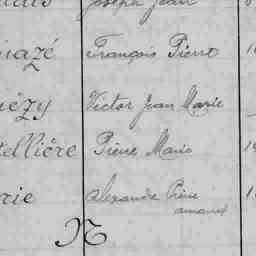 Joseph Jean
uazé François Pierre
uézy Victor Jean Marie
tellière Pierre Marie
rie Alexandre Pierre
armand
N